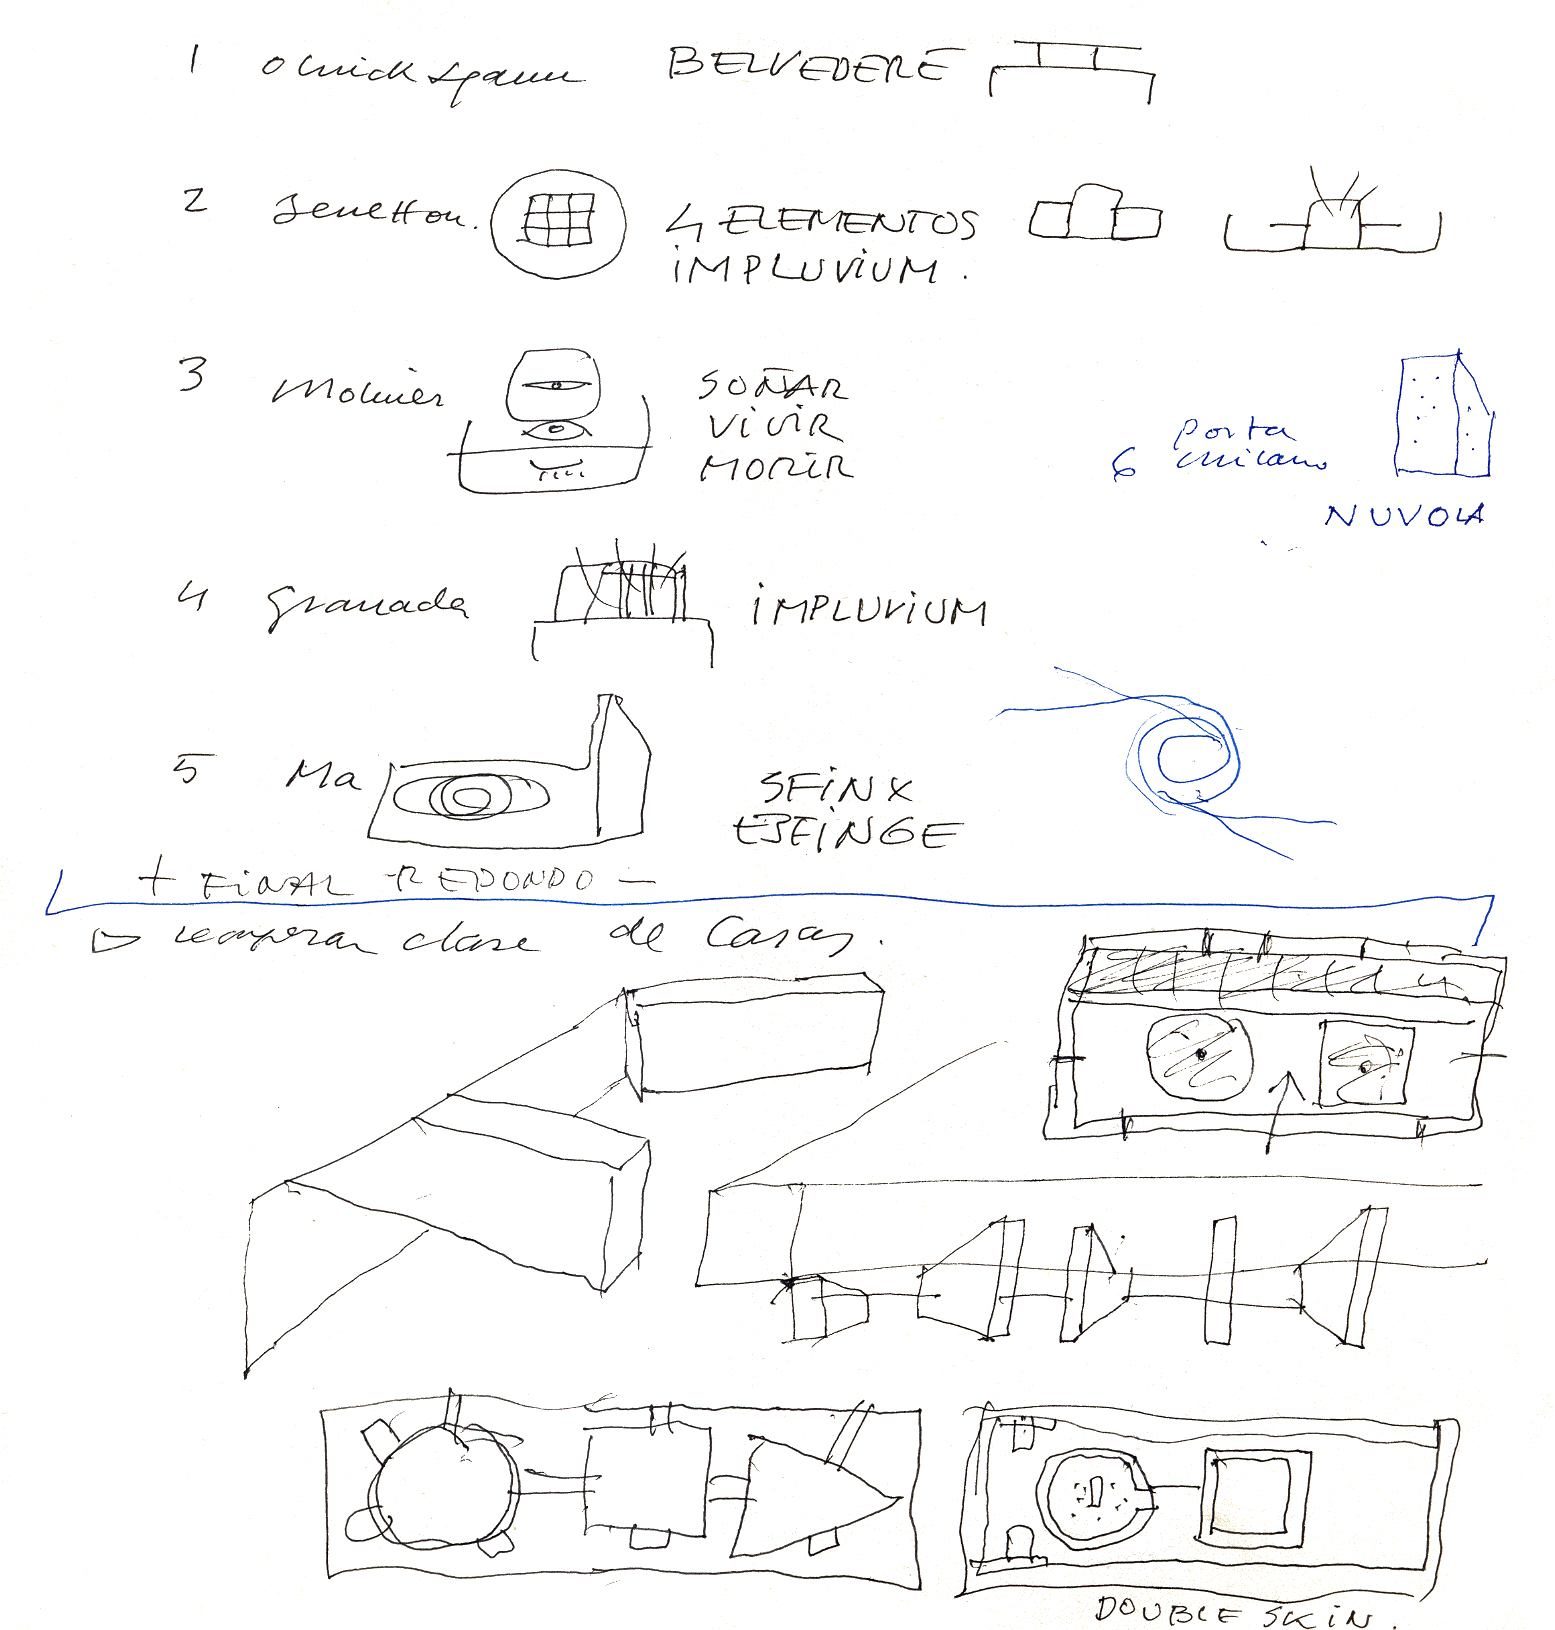 1 Olnick Spanu BELVEDERE
2 Benetton. 4 ELEMENTOS
IMPLUVIUM.
3 Moliner SOÑAR
VIVIR
MORIR
6 Porta Milano
NUVOLA
4 Granada IMPLUVIUM
5 Ma SFINX
ESFINGE
+ FINAL REDONDO -
recuperar clase de Casas.
DOUBLE SKIN.